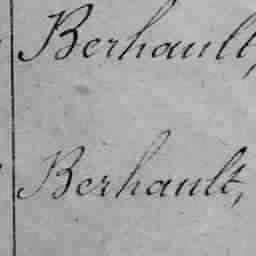 Berhault,
Berhault,